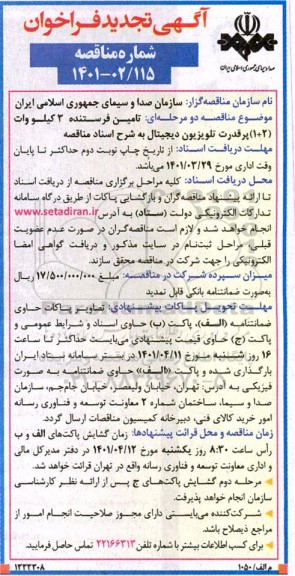 آگهی تجدید فراخوان
شماره مناقصه
۱۴۰۱-۰۲/۱۱۵
صدا و سیمای جمهوری اسلامی ایران
نام سازمان مناقصه‌گزار: سازمان صدا و سیمای جمهوری اسلامی ایران
موضوع مناقصه دو مرحله‌ای: تامین فرستنده ۳ کیلو وات
(۲+۱) پرقدرت تلویزیون دیجیتال به شرح اسناد مناقصه
مهلت دریافت اسناد: از تاریخ چاپ نوبت دوم حداکثر تا پایان
وقت اداری مورخ ۱۴۰۱/۰۳/۲۹ می‌باشد.
محل دریافت اسناد: کلیه مراحل برگزاری مناقصه از دریافت اسناد
تا ارائه پیشنهاد مناقصه‌گران و بازگشایی پاکات از طریق درگاه سامانه
تدارکات الکترونیکی دولت (ستاد) به آدرس www.setadiran.ir
انجام خواهد شد و لازم است مناقصه‌گران در صورت عدم عضویت
قبلی، مراحل ثبت‌نام در سایت مذکور و دریافت گواهی امضا
الکترونیکی را جهت شرکت در مناقصه محقق سازند.
میزان سپرده شرکت در مناقصه: مبلغ ۱۷/۵۰۰/۰۰۰/۰۰۰ ریال
به‌صورت ضمانتنامه بانکی قابل تمدید
مهلت تحویل پاکات پیشنهادی: تصاویر پاکات حاوی
ضمانتنامه (الف)، پاکت (ب) حاوی اسناد و شرایط عمومی و
پاکت (ج) حاوی قیمت پیشنهادی می‌بایست حداکثر تا ساعت
۱۶ روز شنبه مورخ ۱۴۰۱/۰۴/۱۱ در بستر سامانه ستاد ایران
بارگذاری شده و پاکت «الف» حاوی ضمانتنامه به صورت
فیزیکی به آدرس: تهران، خیابان ولیعصر، خیابان جام‌جم، سازمان
صدا و سیما، ساختمان شماره ۲ معاونت توسعه و فناوری رسانه
امور خرید کالای فنی، دبیرخانه کمیسیون مناقصات ارسال گردد.
زمان مناقصه و محل قرائت پیشنهادها: زمان گشایش پاکت‌های الف و ب
رأس ساعت ۸:۳۰ روز یکشنبه مورخ ۱۴۰۱/۰۴/۱۲ در دفتر مدیرکل مالی
و اداری معاونت توسعه و فناوری رسانه واقع در تهران قرائت خواهد شد.
مرحله دوم گشایش پاکت‌های ج پس از ارائه نظر کارشناسی
سازمان انجام خواهد پذیرفت.
شرکت‌کننده می‌بایستی دارای مجوز صلاحیت انجام امور از
مراجع ذیصلاح باشد.
برای کسب اطلاعات بیشتر با شماره تلفن ۲۲۱۶۶۳۱۳ تماس حاصل فرمایید.
م الف/ ۱۰۵۰
۱۳۳۳۳۰۸